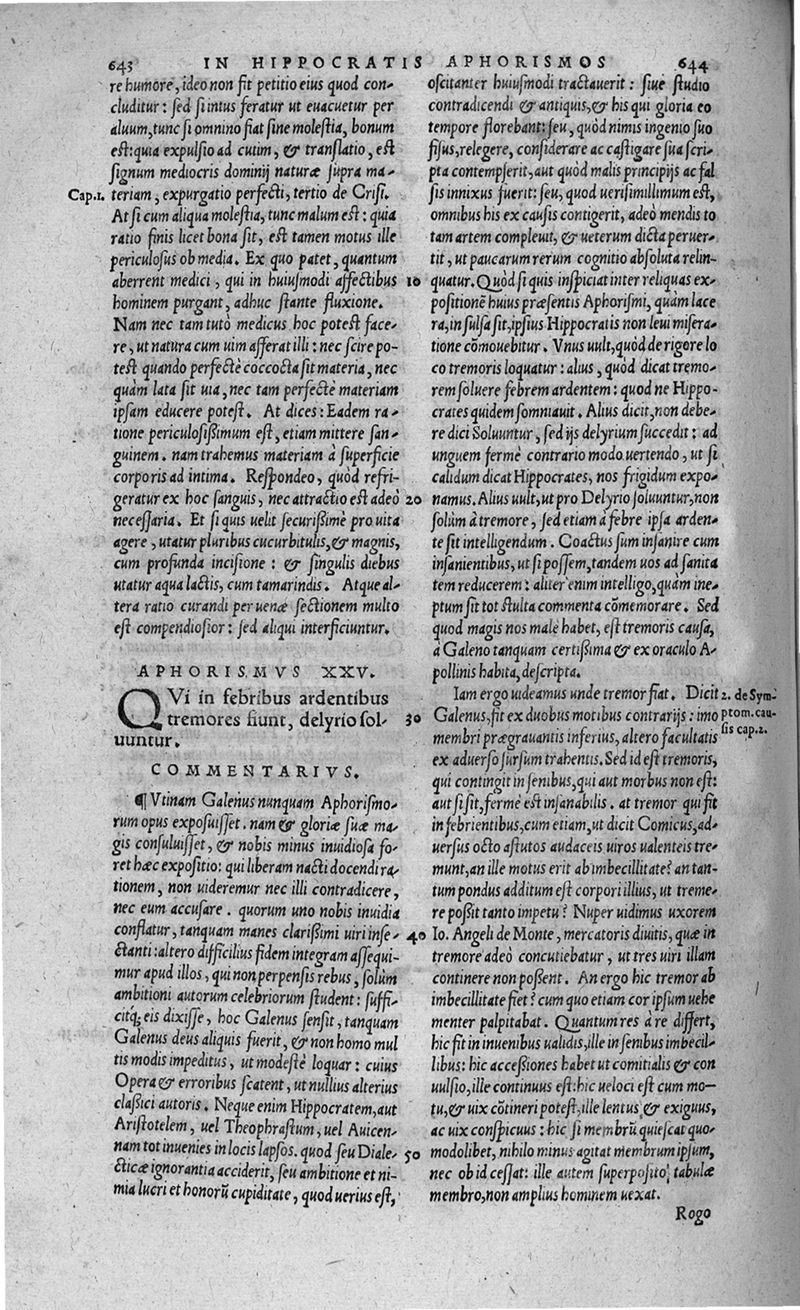 643 IN HIPPOCRATIS APHORISMOS 644
re humore, ideo non fit petitio eius quod con-
cluditur: sed si intus feratur ut euacuetur per
aluum, tunc si omnino fiat sine molestia, bonum
est: quia expulsio ad cutim, & translatio, est
signum mediocris dominij naturæ supra ma-
Cap.1. teriam, expurgatio perfecti, tertio de Crisi.
At si cum aliqua molestia, tunc malum est: quia
ratio finis licet bona sit, est tamen motus ille
periculosus ob media. Ex quo patet, quantum
aberrent medici, qui in huiusmodi affectibus 10
hominem purgant, adhuc stante fluxione.
Nam nec tam tutò medicus hoc potest face-
re, ut natura cum uim afferat illi: nec scire po-
test quando perfectè coccocta sit materia, nec
quàm lata sit uia, nec tam perfectè materiam
ipsam educere potest. At dices: Eadem ra-
tione periculosißimum est, etiam mittere san-
guinem. nam trahemus materiam à superficie
corporis ad intima. Respondeo, quòd refri-
geratur ex hoc sanguis, nec attractio est adeò 20
necessaria. Et si quis uelit securißimè pro uita
agere, utatur pluribus cucurbitulis, & magnis,
cum profunda incisione: & singulis diebus
utatur aqua lactis, cum tamarindis. Atque al-
tera ratio curandi per uenæ sectionem multo
est compendiosior: sed aliqui interficiuntur.
APHORISMVS XXV.
QVi in febribus ardentibus
tremores fiunt, delyrio sol- 30
uuntur.
COMMENTARIVS.
¶ Vtinam Galenus nunquam Aphorismo-
rum opus exposuisset. nam & gloriæ suæ ma-
gis consuluisset, & nobis minus inuidiosa fo-
ret hæc expositio: qui liberam nacti docendi ra-
tionem, non uideremur nec illi contradicere,
nec eum accusare. quorum uno nobis inuidia
conflatur, tanquam manes clarißimi uiri inse- 40
ctanti: altero difficilius fidem integram assequi-
mur apud illos, qui non perpensis rebus, solùm
ambitioni autorum celebriorum student: suffi-
citq; eis dixisse, hoc Galenus sensit, tanquam
Galenus deus aliquis fuerit, & non homo mul
tis modis impeditus, ut modestè loquar: cuius
Opera & erroribus scatent, ut nullius alterius
claßici autoris. Neque enim Hippocratem, aut
Aristotelem, uel Theophrastum, uel Auicen-
nam tot inuenies in locis lapsos. quod seu Diale- 50
cticæ ignorantia acciderit, seu ambitione et ni-
mia lucri et honorũ cupiditate, quod uerius est,
oscitanter huiusmodi tractauerit: siue studio
contradicendi & antiquis, & his qui gloria eo
tempore florebant: seu, quòd nimis ingenio suo
fisus, relegere, considerare ac castigare sua scri-
pta contempserit, aut quòd malis principijs ac fal
sis innixus fuerit: seu, quod uerisimillimum est,
omnibus his ex causis contigerit, adeò mendis to
tam artem compleuit, & ueterum dicta peruer-
tit, ut paucarum rerum cognitio absoluta relin-
quatur. Quòd si quis inspiciat inter reliquas ex-
positionẽ huius præsentis Aphorismi, quàm lace
ra, insulsa sit, ipsius Hippocratis non leui misera-
tione cõmouebitur. Vnus uult, quòd de rigore lo
co tremoris loquatur: alius, quòd dicat tremo-
rem soluere febrem ardentem: quod ne Hippo-
crates quidem somniauit. Alius dicit, non debe-
re dici Soluuntur, sed ijs delyrium succedit: ad
unguem fermè contrario modo uertendo, ut si
calidum dicat Hippocrates, nos frigidum expo-
namus. Alius uult, ut pro Delyrio soluuntur, non
solùm à tremore, sed etiam à febre ipsa arden-
te sit intelligendum. Coactus sum insanire cum
insanientibus, ut si possem, tandem uos ad sanita
tem reducerem: aliter enim intelligo, quàm ine-
ptum sit tot stulta commenta cõmemorare. Sed
quod magis nos male habet, est tremoris causa,
à Galeno tanquam certißima & ex oraculo A-
pollinis habita, descripta.
Iam ergo uideamus unde tremor fiat. Dicit 2. de Sym-
Galenus, fit ex duobus motibus contrarijs: imo ptom. cau-
membri prægrauantis inferius, altero facultatis sis cap.2.
ex aduerso sursum trahentis. Sed id est tremoris,
qui contingit in senibus, qui aut morbus non est:
aut si sit, fermè est insanabilis. at tremor qui fit
in febrientibus, cum etiam, ut dicit Comicus, ad-
uersus octo astutos audaceis uiros ualenteis tre-
munt, an ille motus erit ab imbecillitate? an tan-
tum pondus additum est corpori illius, ut treme-
re poßit tanto impetu? Nuper uidimus uxorem
Io. Angeli de Monte, mercatoris diuitis, quæ in
tremore adeò concutiebatur, ut tres uiri illam
continere non poßent. An ergo hic tremor ab
imbecillitate fiet? cum quo etiam cor ipsum uehe
menter palpitabat. Quantum res à re differt,
hic fit in inuenibus ualidis, ille in senibus imbecil-
libus: hic acceßiones habet ut comitialis & con
uulsio, ille continuus est: hic ueloci est cum mo-
tu, & uix cõtineri potest, ille lentus & exiguus,
ac uix conspicuus: hic si membrũ quiescat quo-
modolibet, nihilo minus agitat membrum ipsum,
nec ob id cessat: ille autem superposito tabulæ
membro, non amplius hominem uexat.
Rogo